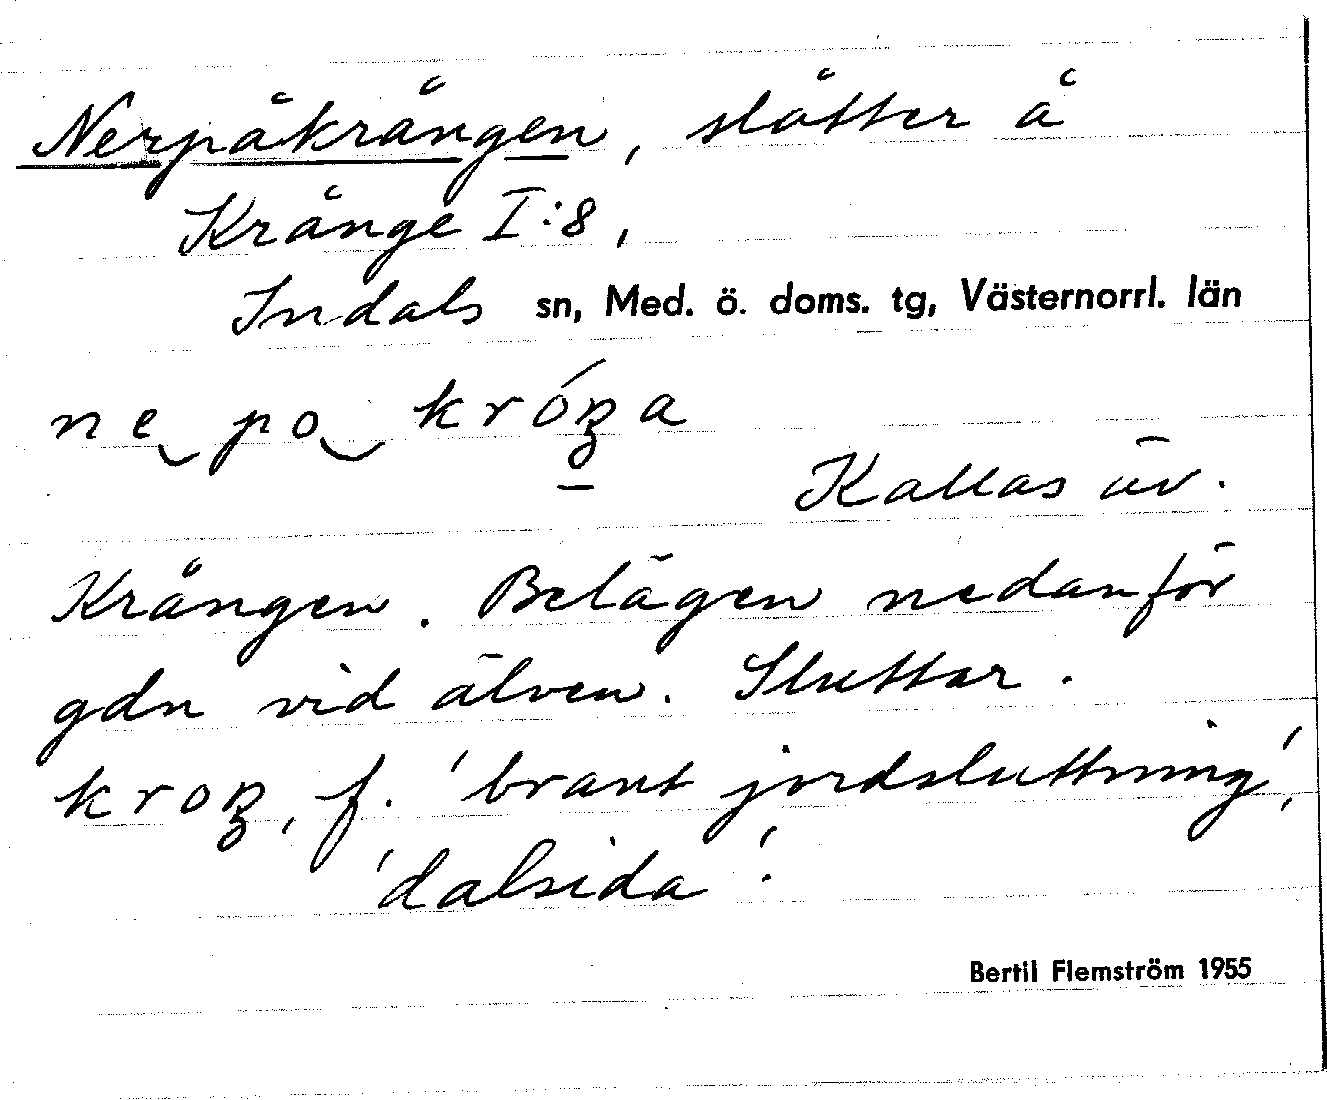 Nerpåkrången, slåtter å
Krånge I:8,
Indals sn, Med. ö. doms. tg, Västernorrl. län
ne‿po‿króŋa
Kallas äv.
Krången. Belägen nedanför
gdn vid älven. Sluttar.
kroŋ, f. 'brant jordsluttning',
'dalsida'.
Bertil Flemström 1955